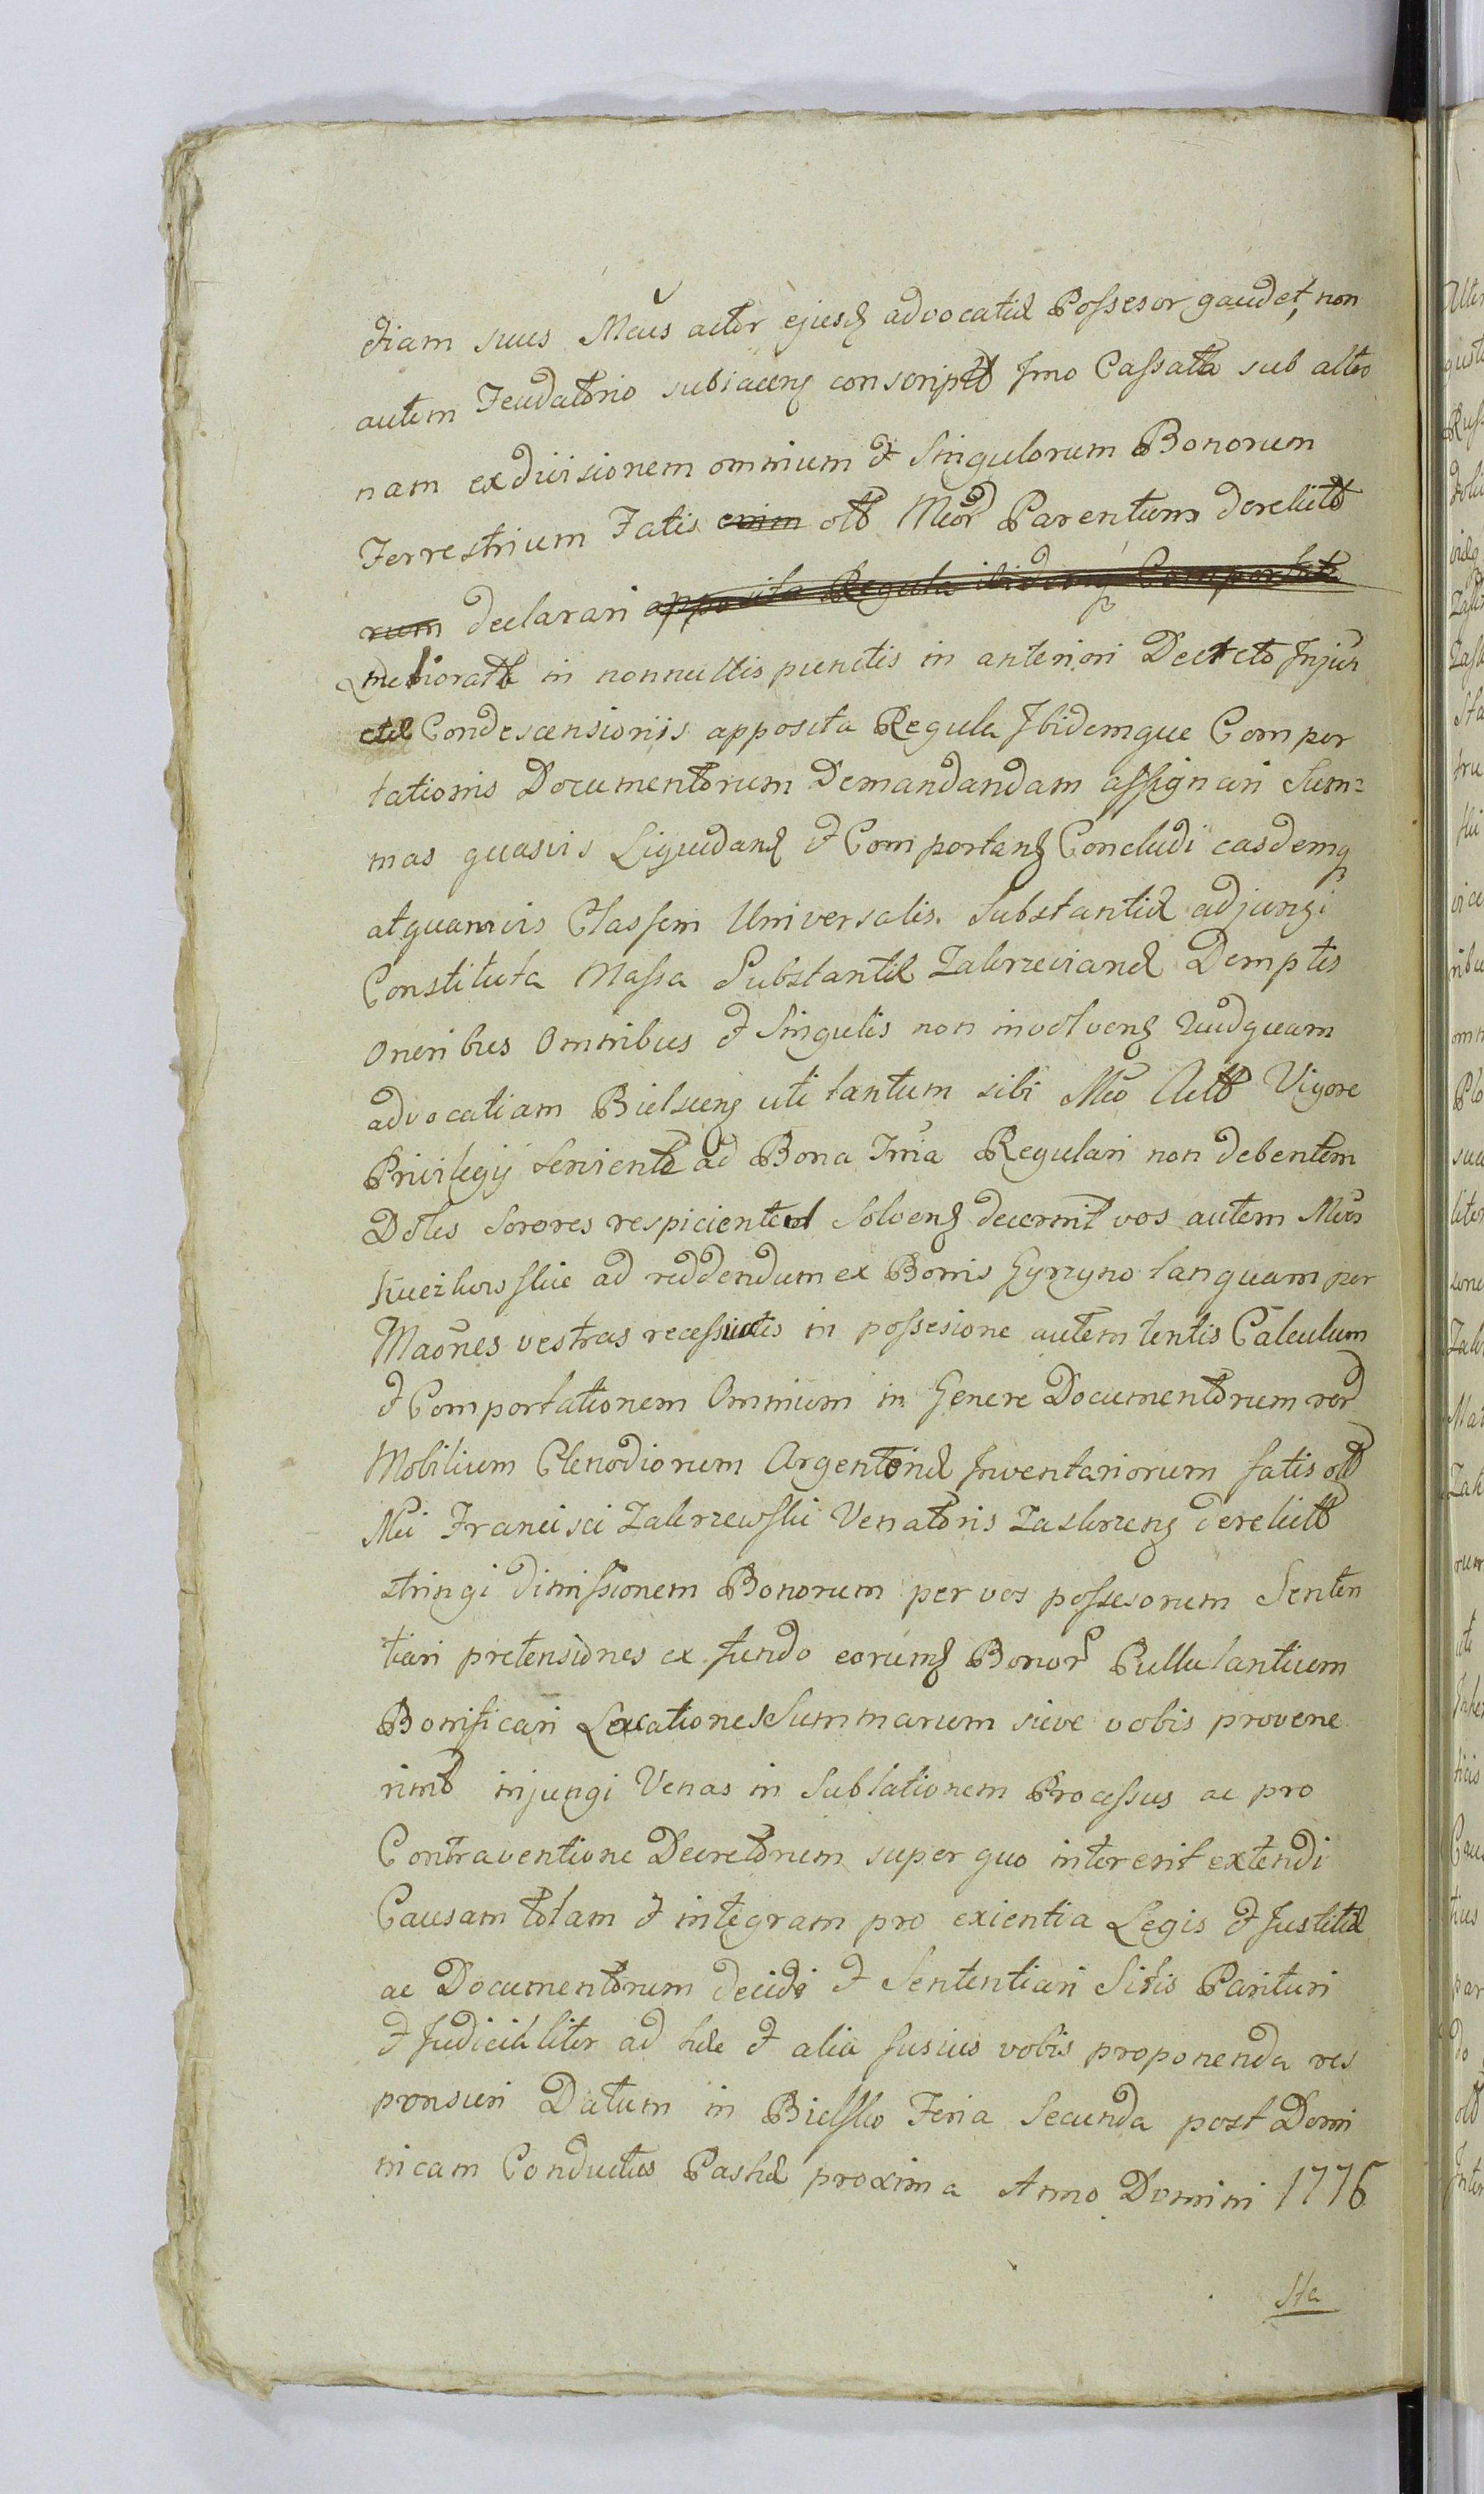 diam suus Meus actor ejusq advocatiæ Possesor gaudet, non
autem Feudatorio subiacenq conscripto Imo Cassata sub alter
nam exdivisionem omnium et Singulorum Bonorum
Terrestrium Fatis enim olto Meor Parentum derelicto
rum declarari apposita Regula ibidemq Comportat
meliorato in nonnullis punctis in anteriori Decreto Injun
ctæ Condescensionis apposita Regula Ibidemque Compor
tationis Documentorum Demandandam assignari Sum=
mas quasvis Liquidanq et Comportanq Concludi easdemq
atquamvis Classem Universalis Substantiæ adjungi
Constituta Massa Substantiæ Zakrzevianæ Demptis
Oneribus Omnibus et Singulis non involvenq quidquam
advocatiam Bielscenq uti tantum sibi Meo Acto Vigore
Privilegij serviente ad Bona Tria Regulari non debentem
Dotes Sorores respicientes Solvenq decernit vos autem Mcos
ad reddendum ex Bonis Gyrzyno tanquam per
Maones vestras recessuatis in possesione autem tentis Calculum
et Comportationem Omnium in Genere Documentorum rer
Mobilium Clenodiorum Argentoriæ Inventariorum fatis olto
Mci Francisci Zakrzewski Venatoris Zaskrzenq derelicto
stringi dimissionem Bonorum per vos possesorum Senten
tiari pretensiones ex fundo eorumq Bonor Pullulantium
Bonificari Locationes Summarum sive vobis provene
rint injungi Venas in Sublationem Processus ac pro
Contraventione Decretorum super quo intererit extendi
Causam totam et integram pro exientia Legis et Justitiæ
ac Documentorum decidi et Sententiari Sitis Parituri
et Judicialiter ad hæc et alia fusius vobis proponenda res
ponsuri Datum in Bielsko Feria Secunda post Domi
nicam Conductus Paschæ proxima Anno Domini 1776
Sta